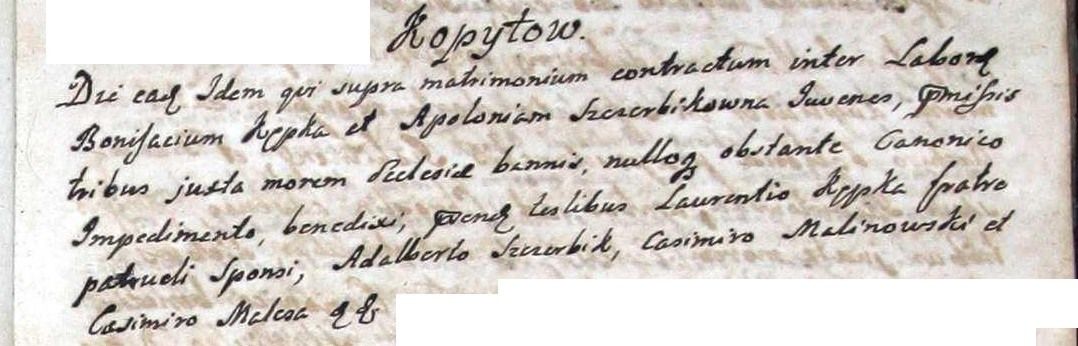 Kopytow.
Die eadē Idem qui supra matrimonium contractum inter Laborē
Bonifacium Kępka et Apoloniam Szczerbikowna Iuvenes, p̄missis
tribus juxta morem Ecclesiæ bannis, nulloqꝫ obstante Canonico
Impedimento, benedixi; p̄sen̄ testibus Laurentio Kępka fratre
patrueli Sponsi, Adalberto Szczerbik, Casimiro Malinowski et
Casimiro Malesa